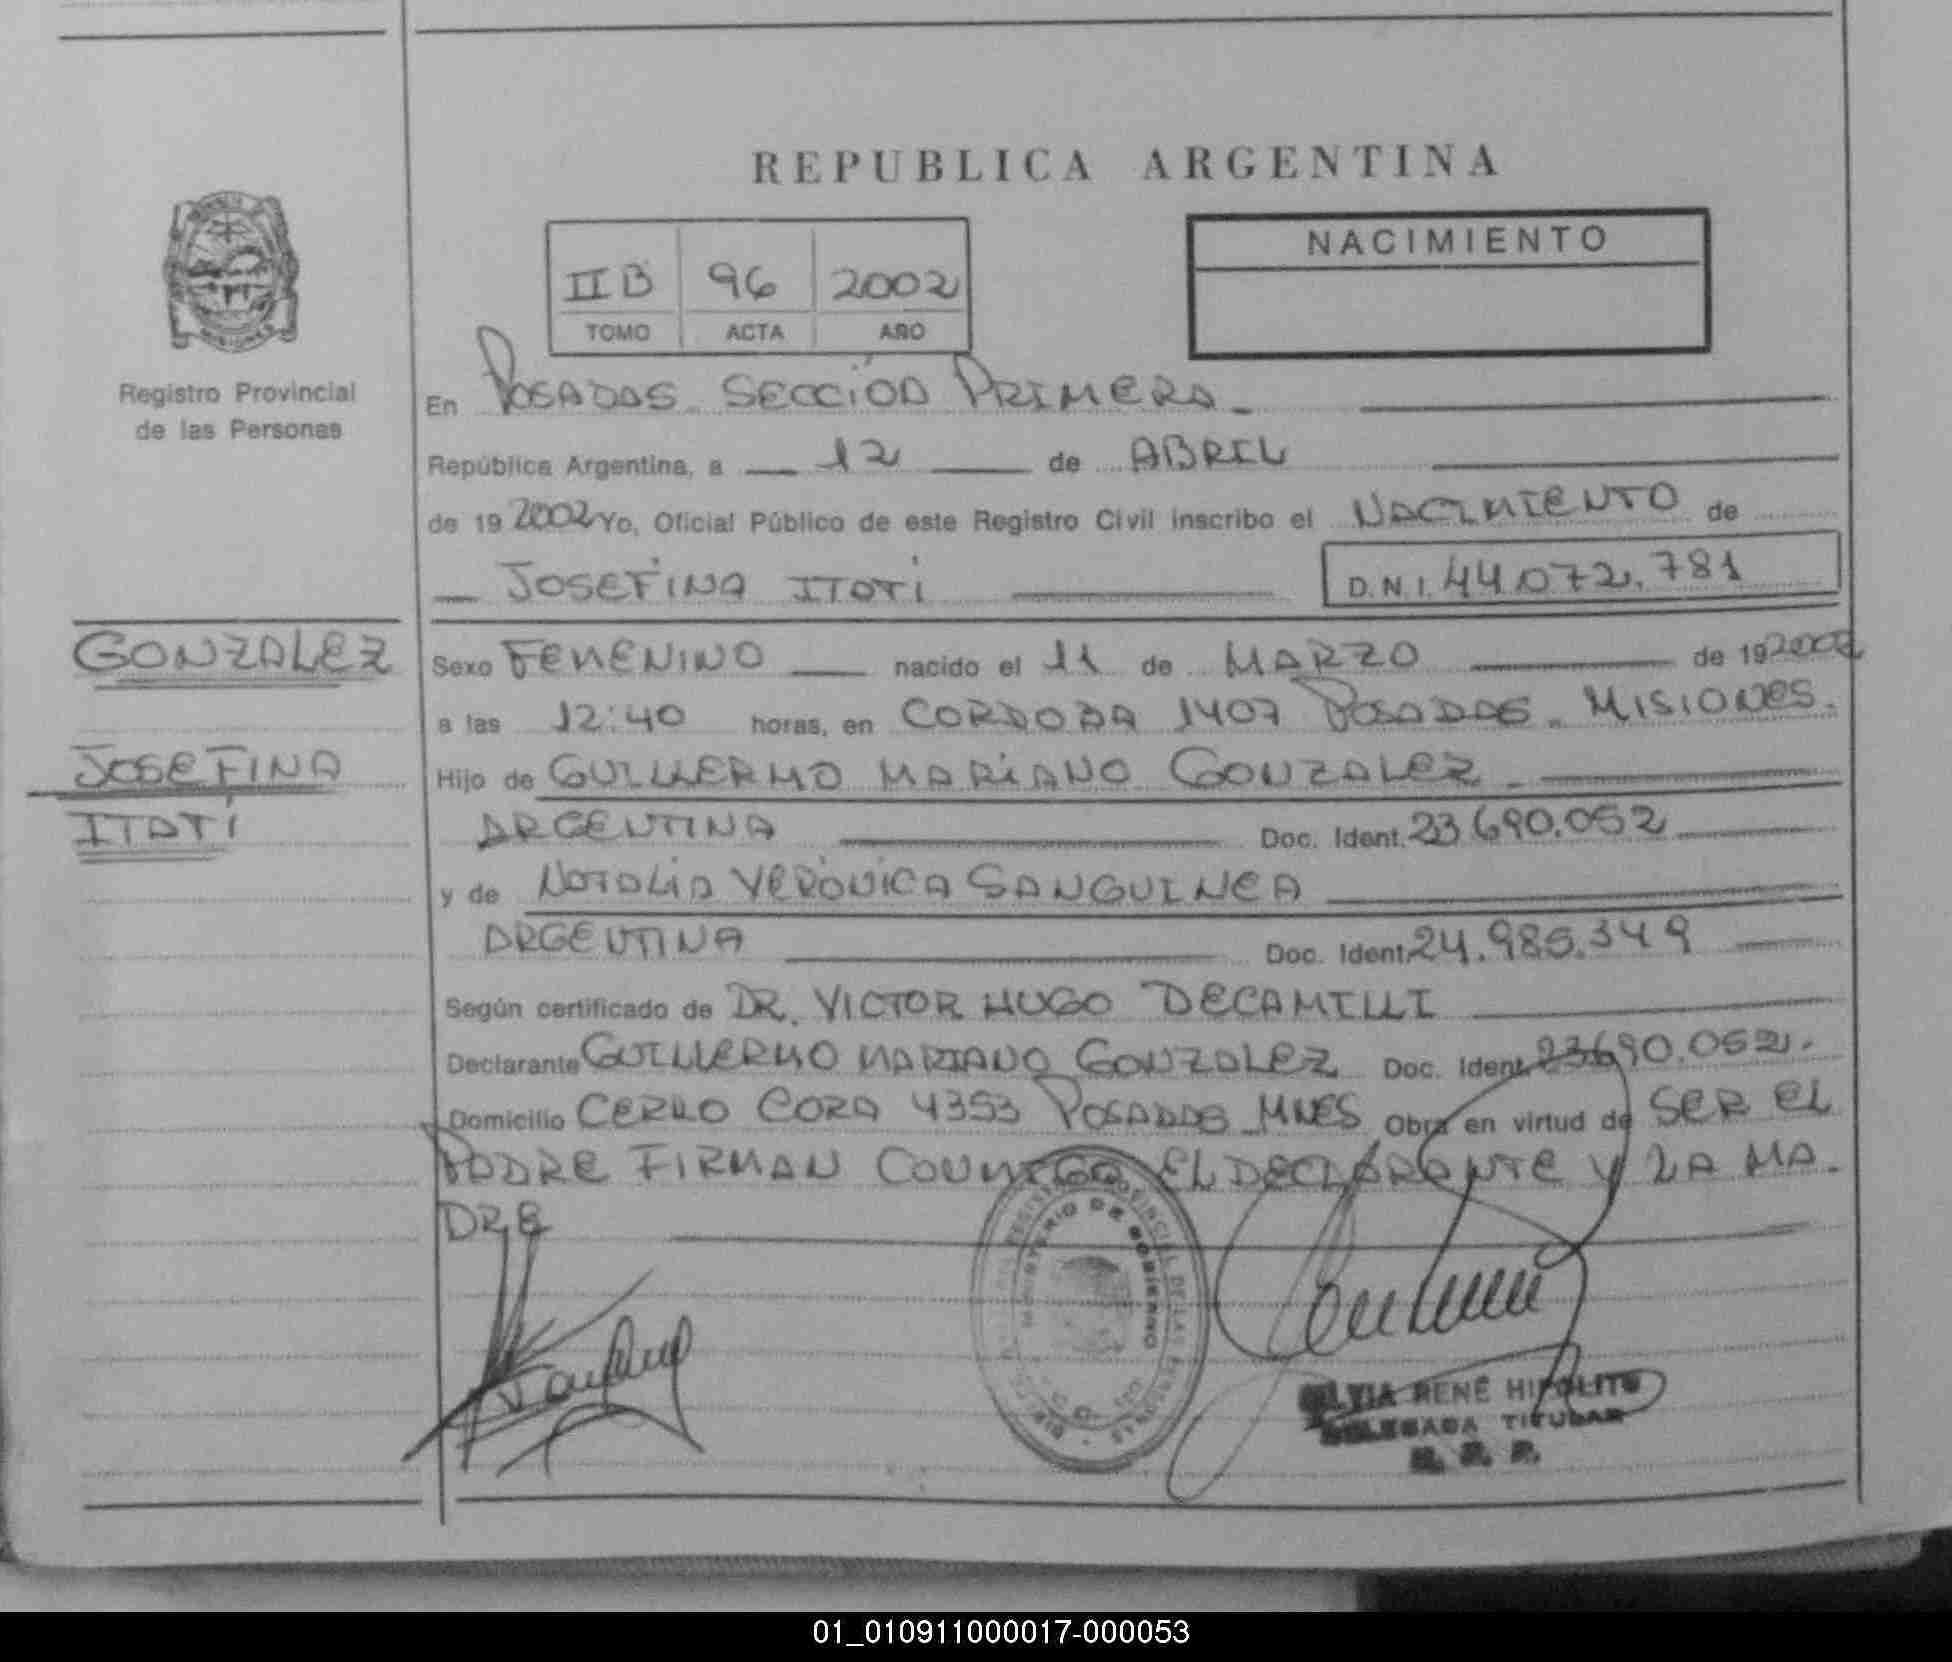 REPUBLICA ARGENTINA
IIB 96 2002
TOMO ACTA AÑO
NACIMIENTO
Registro Provincial
de las Personas
En POSADAS SECCIÓN PRIMERA
República Argentina, a 12 de ABRIL
de 19 2002 Yo, Oficial Público de este Registro Civil inscribo el NACIMIENTO de
JOSEFINA ITATÍ D.N.I. 44.072.781
GONZALEZ
JOSEFINA
ITATÍ
Sexo FEMENINO nacido el 11 de MARZO de 19 2002
a las 12:40 horas, en CORDOBA 1407 POSADAS. MISIONES.
Hijo de GUILLERMO MARIANO GONZALEZ
ARGENTINA Doc. Ident. 23.690.052
y de NATALIA VERÓNICA SANGUINEA
ARGENTINA Doc. Ident. 24.985.349
Según certificado de DR. VICTOR HUGO DECAMILLI
Declarante GUILLERMO MARIANO GONZALEZ Doc. Ident. 23690.052.
Domicilio CERRO CORA 4353 POSADAS MNES Obra en virtud de SER EL
PADRE FIRMAN CONMIGO EL DECLARANTE Y LA MA-
DRE
MINISTERIO DE GOBIERNO
SILVIA RENÉ HIPOLITO
DELEGADA TITULAR
01_010911000017-000053